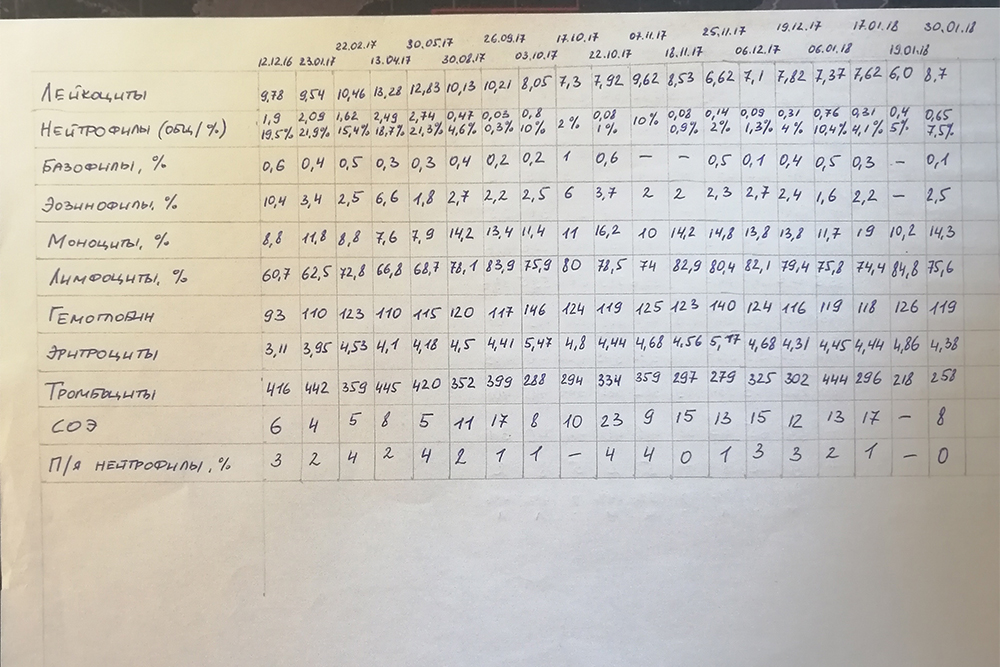 22.02.17 30.05.17 26.09.17 17.10.17 07.11.17 25.11.17 19.12.17 17.01.18 30.01.18
12.12.16 23.01.17 13.04.17 30.08.17 03.10.17 22.10.17 18.11.17 06.12.17 06.01.18 19.01.18
Лейкоциты 9,78 9,54 10,46 13,28 12,83 10,13 10,21 8,05 7,3 7,92 9,62 8,53 6,62 7,1 7,82 7,37 7,62 6,0 8,7
1,9 2,09 1,62 2,49 2,74 0,47 0,03 0,8 0,08 0,08 0,14 0,09 0,31 0,76 0,31 0,4 0,65
Нейтрофилы (общ/%) 19.5% 21,9% 15,4% 18,7% 21,3% 4,6% 0,3% 10% 2% 1% 10% 0,9% 2% 1,3% 4% 10,4% 4,1% 5% 7,5%
Базофилы, % 0,6 0,4 0,5 0,3 0,3 0,4 0,2 0,2 1 0,6 — — 0,5 0,1 0,4 0,5 0,3 — 0,1
Эозинофилы, % 10,4 3,4 2,5 6,6 1,8 2,7 2,2 2,5 6 3,7 2 2 2,3 2,7 2,4 1,6 2,2 — 2,5
Моноциты, % 8,8 11,8 8,8 7,6 7,9 14,2 13,4 11,4 11 16,2 10 14,2 14,8 13,8 13,8 11,7 19 10,2 14,3
Лимфоциты, % 60,7 62,5 72,8 66,8 68,7 78,1 83,9 75,9 80 78,5 74 82,9 80,4 82,1 79,4 75,8 74,4 84,8 75,6
Гемоглобин 93 110 123 110 115 120 117 146 124 119 125 123 140 124 116 119 118 126 119
Эритроциты 3,11 3,95 4,53 4,1 4,18 4,5 4,41 5,47 4,8 4,44 4,68 4.56 5,17 4,68 4,31 4,45 4,44 4,86 4,38
Тромбоциты 416 442 359 445 420 352 399 288 294 334 359 297 279 325 302 444 296 218 258
СОЭ 6 4 5 8 5 11 17 8 10 23 9 15 13 15 12 13 17 — 8
П/я нейтрофилы, % 3 2 4 2 4 2 1 1 — 4 4 0 1 3 3 2 1 — 0